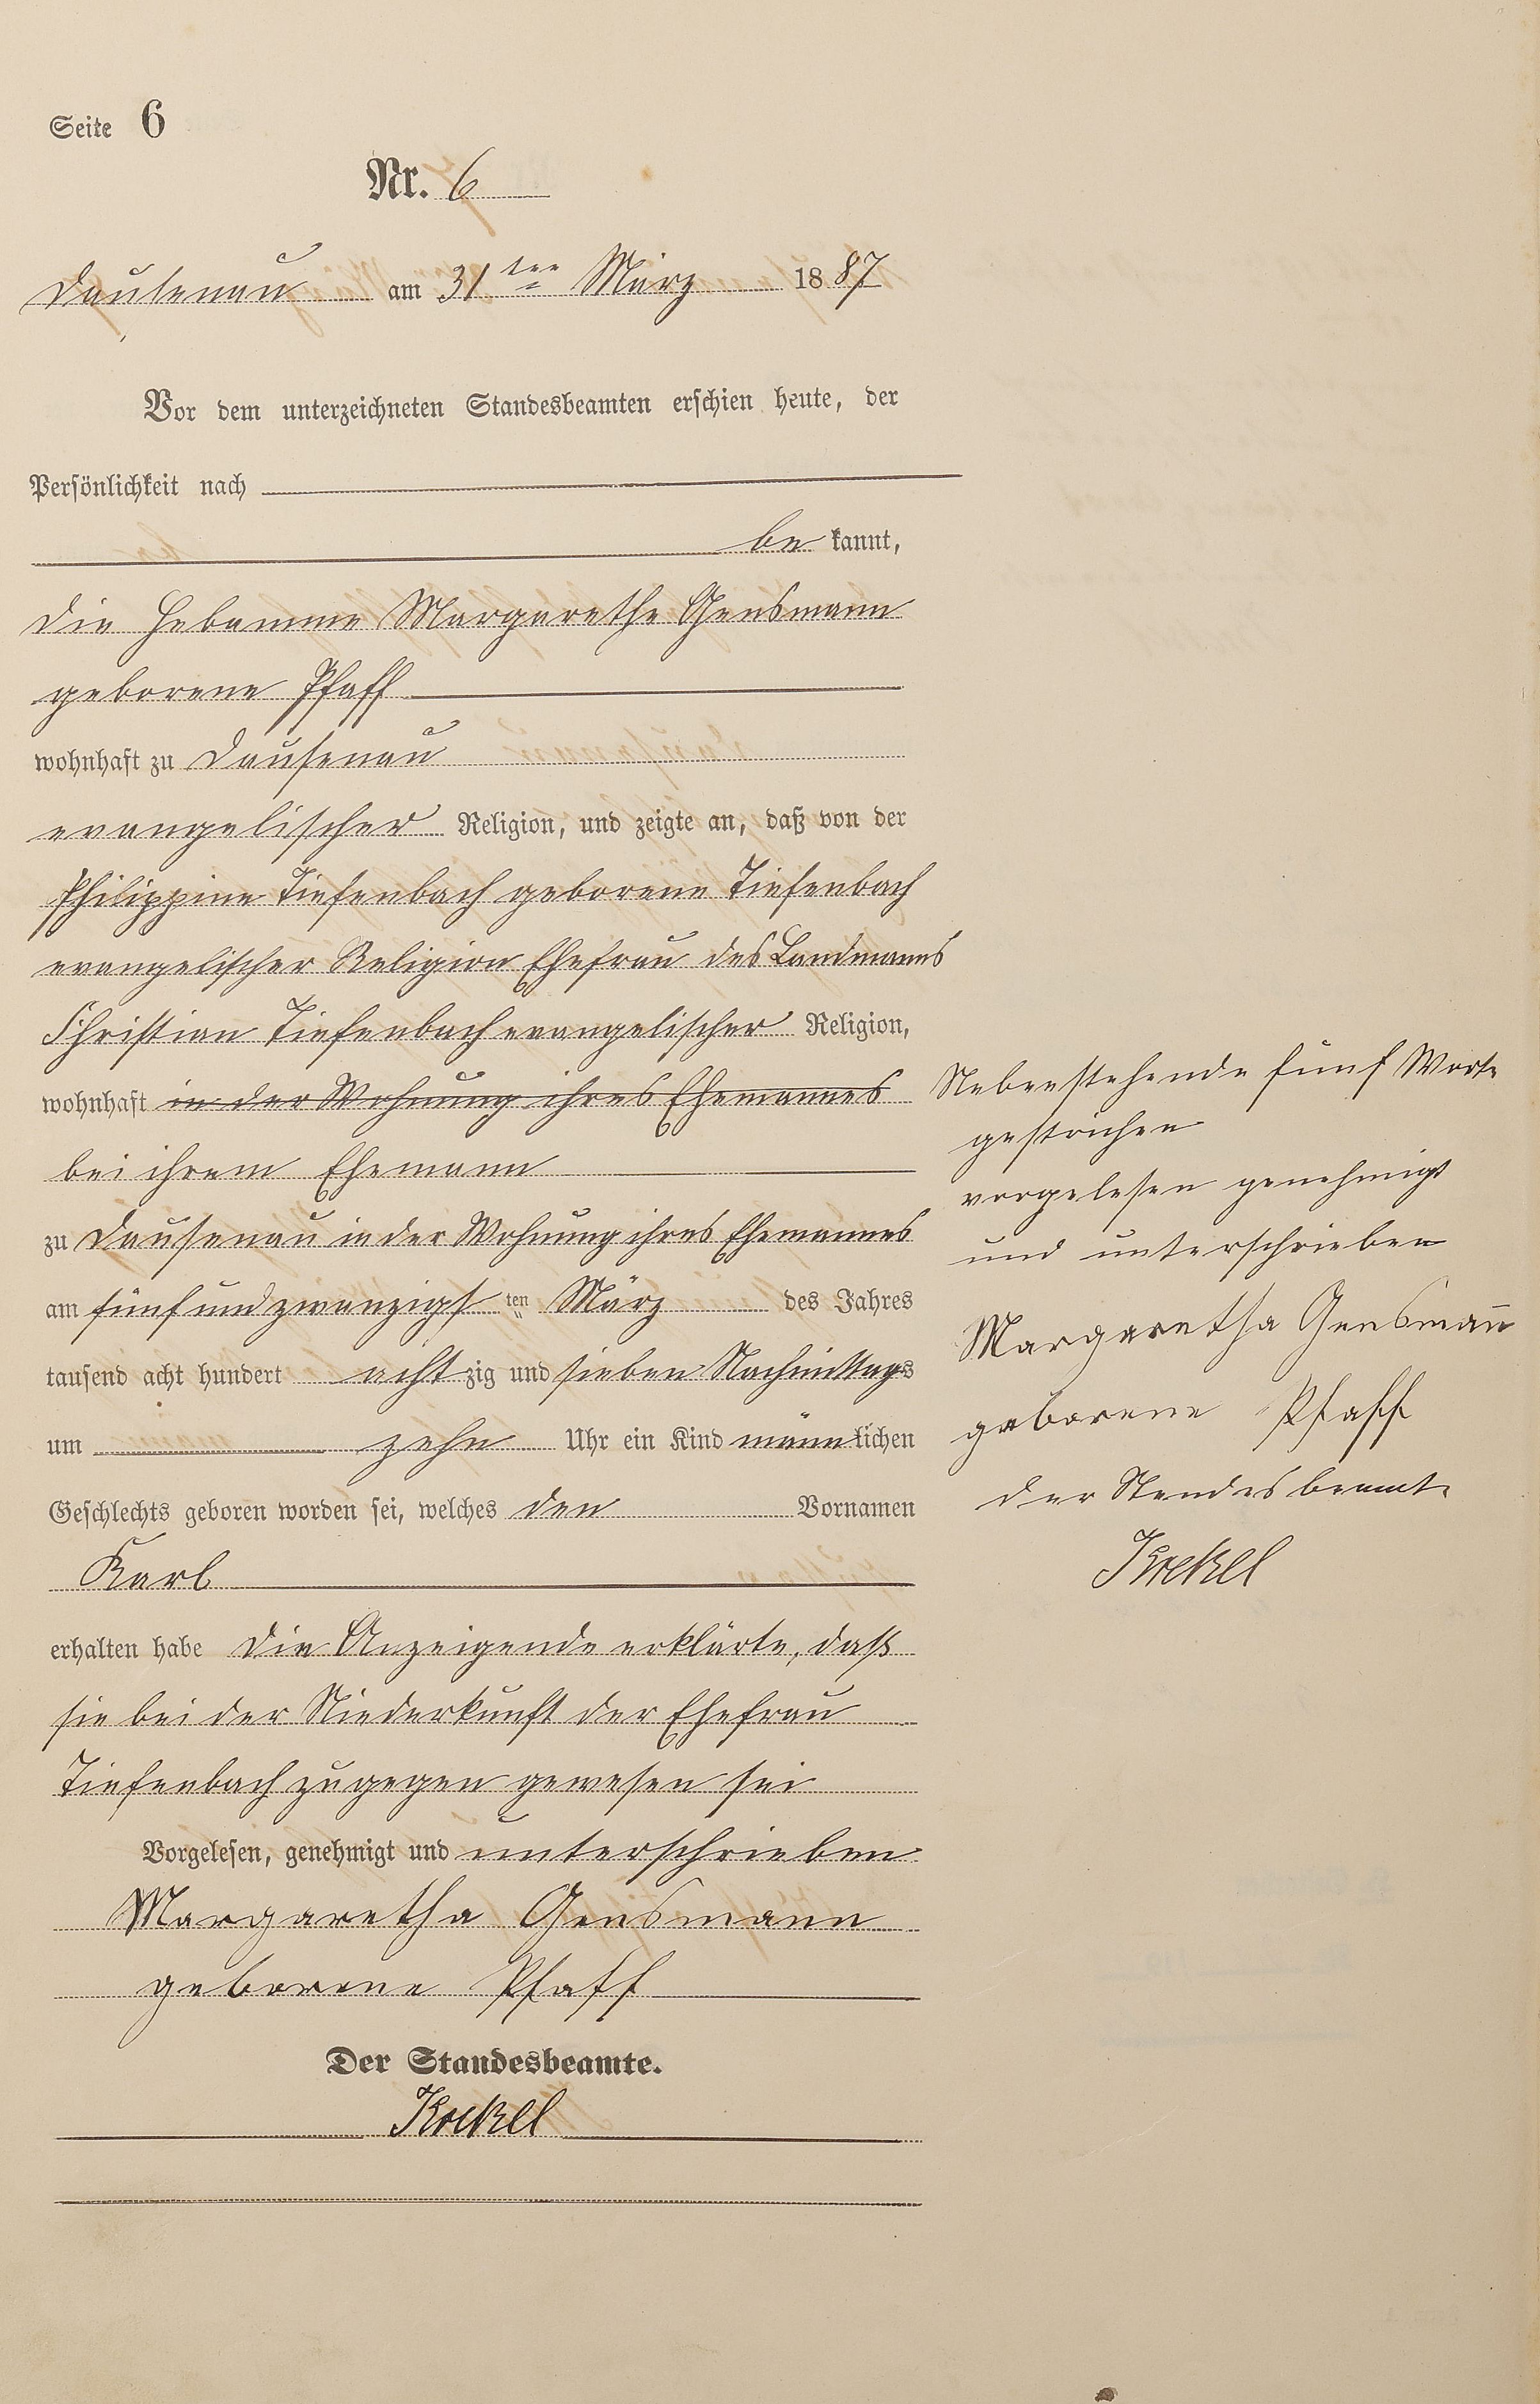 Seite 6
Nr. 6
Dausenau am 31ten März 1887
Vor dem unterzeichneten Standesbeamten erschien heute, der
Persönlichkeit nach
be kannt,
die Hebamme Margarethe Gensmann
geborene Pfaff
wohnhaft zu Dausenau
evangelischer Religion, und zeigte an, daß von der
Philippine Tiefenbach geborene Tiefenbach
evangelischer Religion Ehefrau des Landmanns
Christian Tiefenbach evangelischer Religion,
wohnhaft in der Wohnung ihres Ehemannes
bei ihrem Ehemann
zu Dausenau in der Wohnung ihres Ehemannes
am fünf und zwanzigsten März des Jahres
tausend acht hundert achtzig und sieben Nachmittags
um zehn Uhr ein Kind männlichen
Geschlechts geboren worden sei, welches den Vornamen
Karl
erhalten habe Die Anzeigende erklärte, daß
sie bei der Niederkunft der Ehefrau
Tiefenbach zugegen gewesen sei
Vorgelesen, genehmigt und unterschrieben
Margaretha Gensmann
geborene Pfaff
Der Standesbeamte.
Nebenstehende fünf Worte
gestrichen
vorgelesen genehmigt
und unterschrieben
Margaretha Gensmann
geborene Pfaff
der Standesbeamte